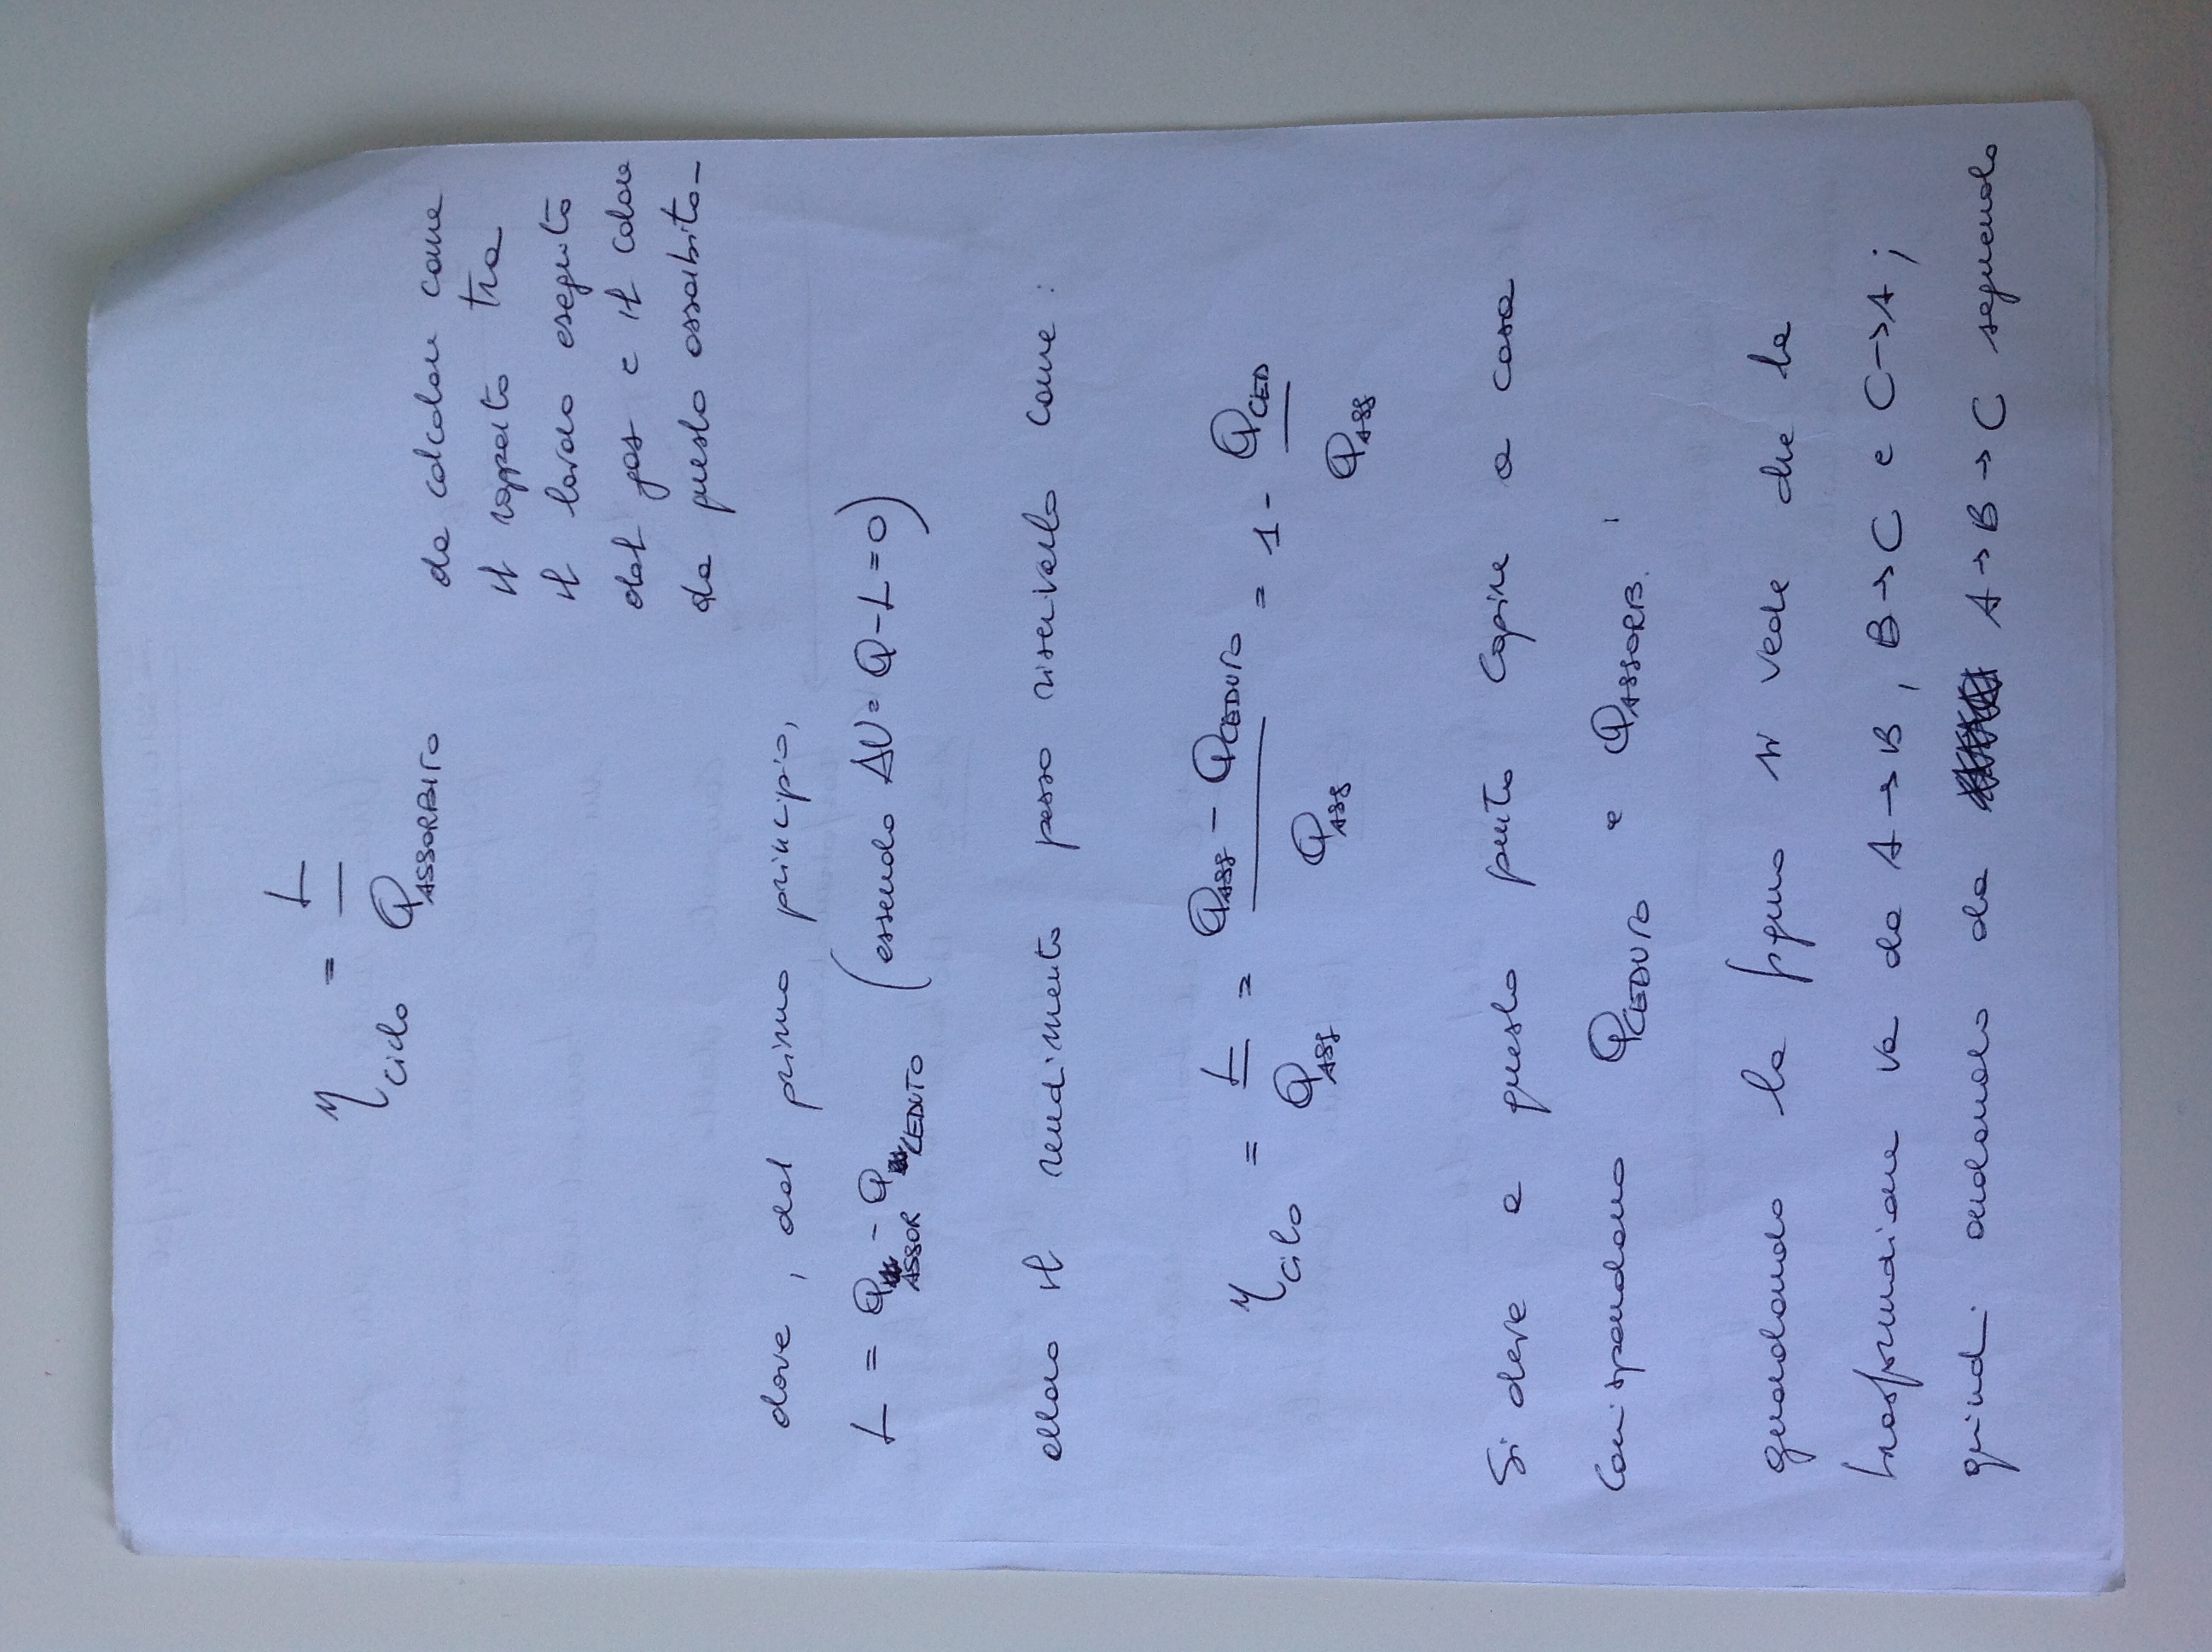 η ciclo = L / Q ASSORBITO
da calcolare come
il rapporto tra
il lavoro eseguito
dal gas e il calore
da questo assorbito-
dove, dal primo principio,
L = Q ASSOR - Q CEDUTO (essendo ΔU = Q-L=0)
allora il rendimento posso riscriverlo come:
η ciclo = L / Q ASS = Q ASS - Q CEDUTO / Q ASS = 1 - Q CED / Q ASS
Si deve a questo punto capire a cosa
corrispondono Q CEDUTO e Q ASSORB.
guardando la figura si vede che la
trasformazione va da A→B, B→C e C→A;
quindi andando da A→B→C seguendo